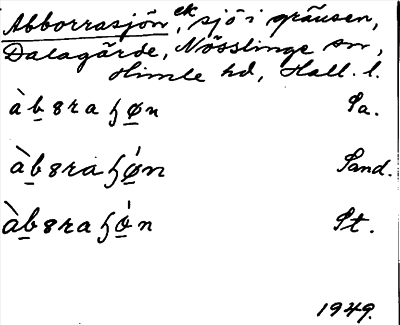 Abborrasjön ek, sjö i gränsen,
Dalagärde, Nösslinge sn,
Himle hd, Hall. l.
àb̲ɞraɧø̲n Sa.
àb̲ɞraɧǿ̲n Sand.
àb̲ɞraɧǿ̲n St.
1949.